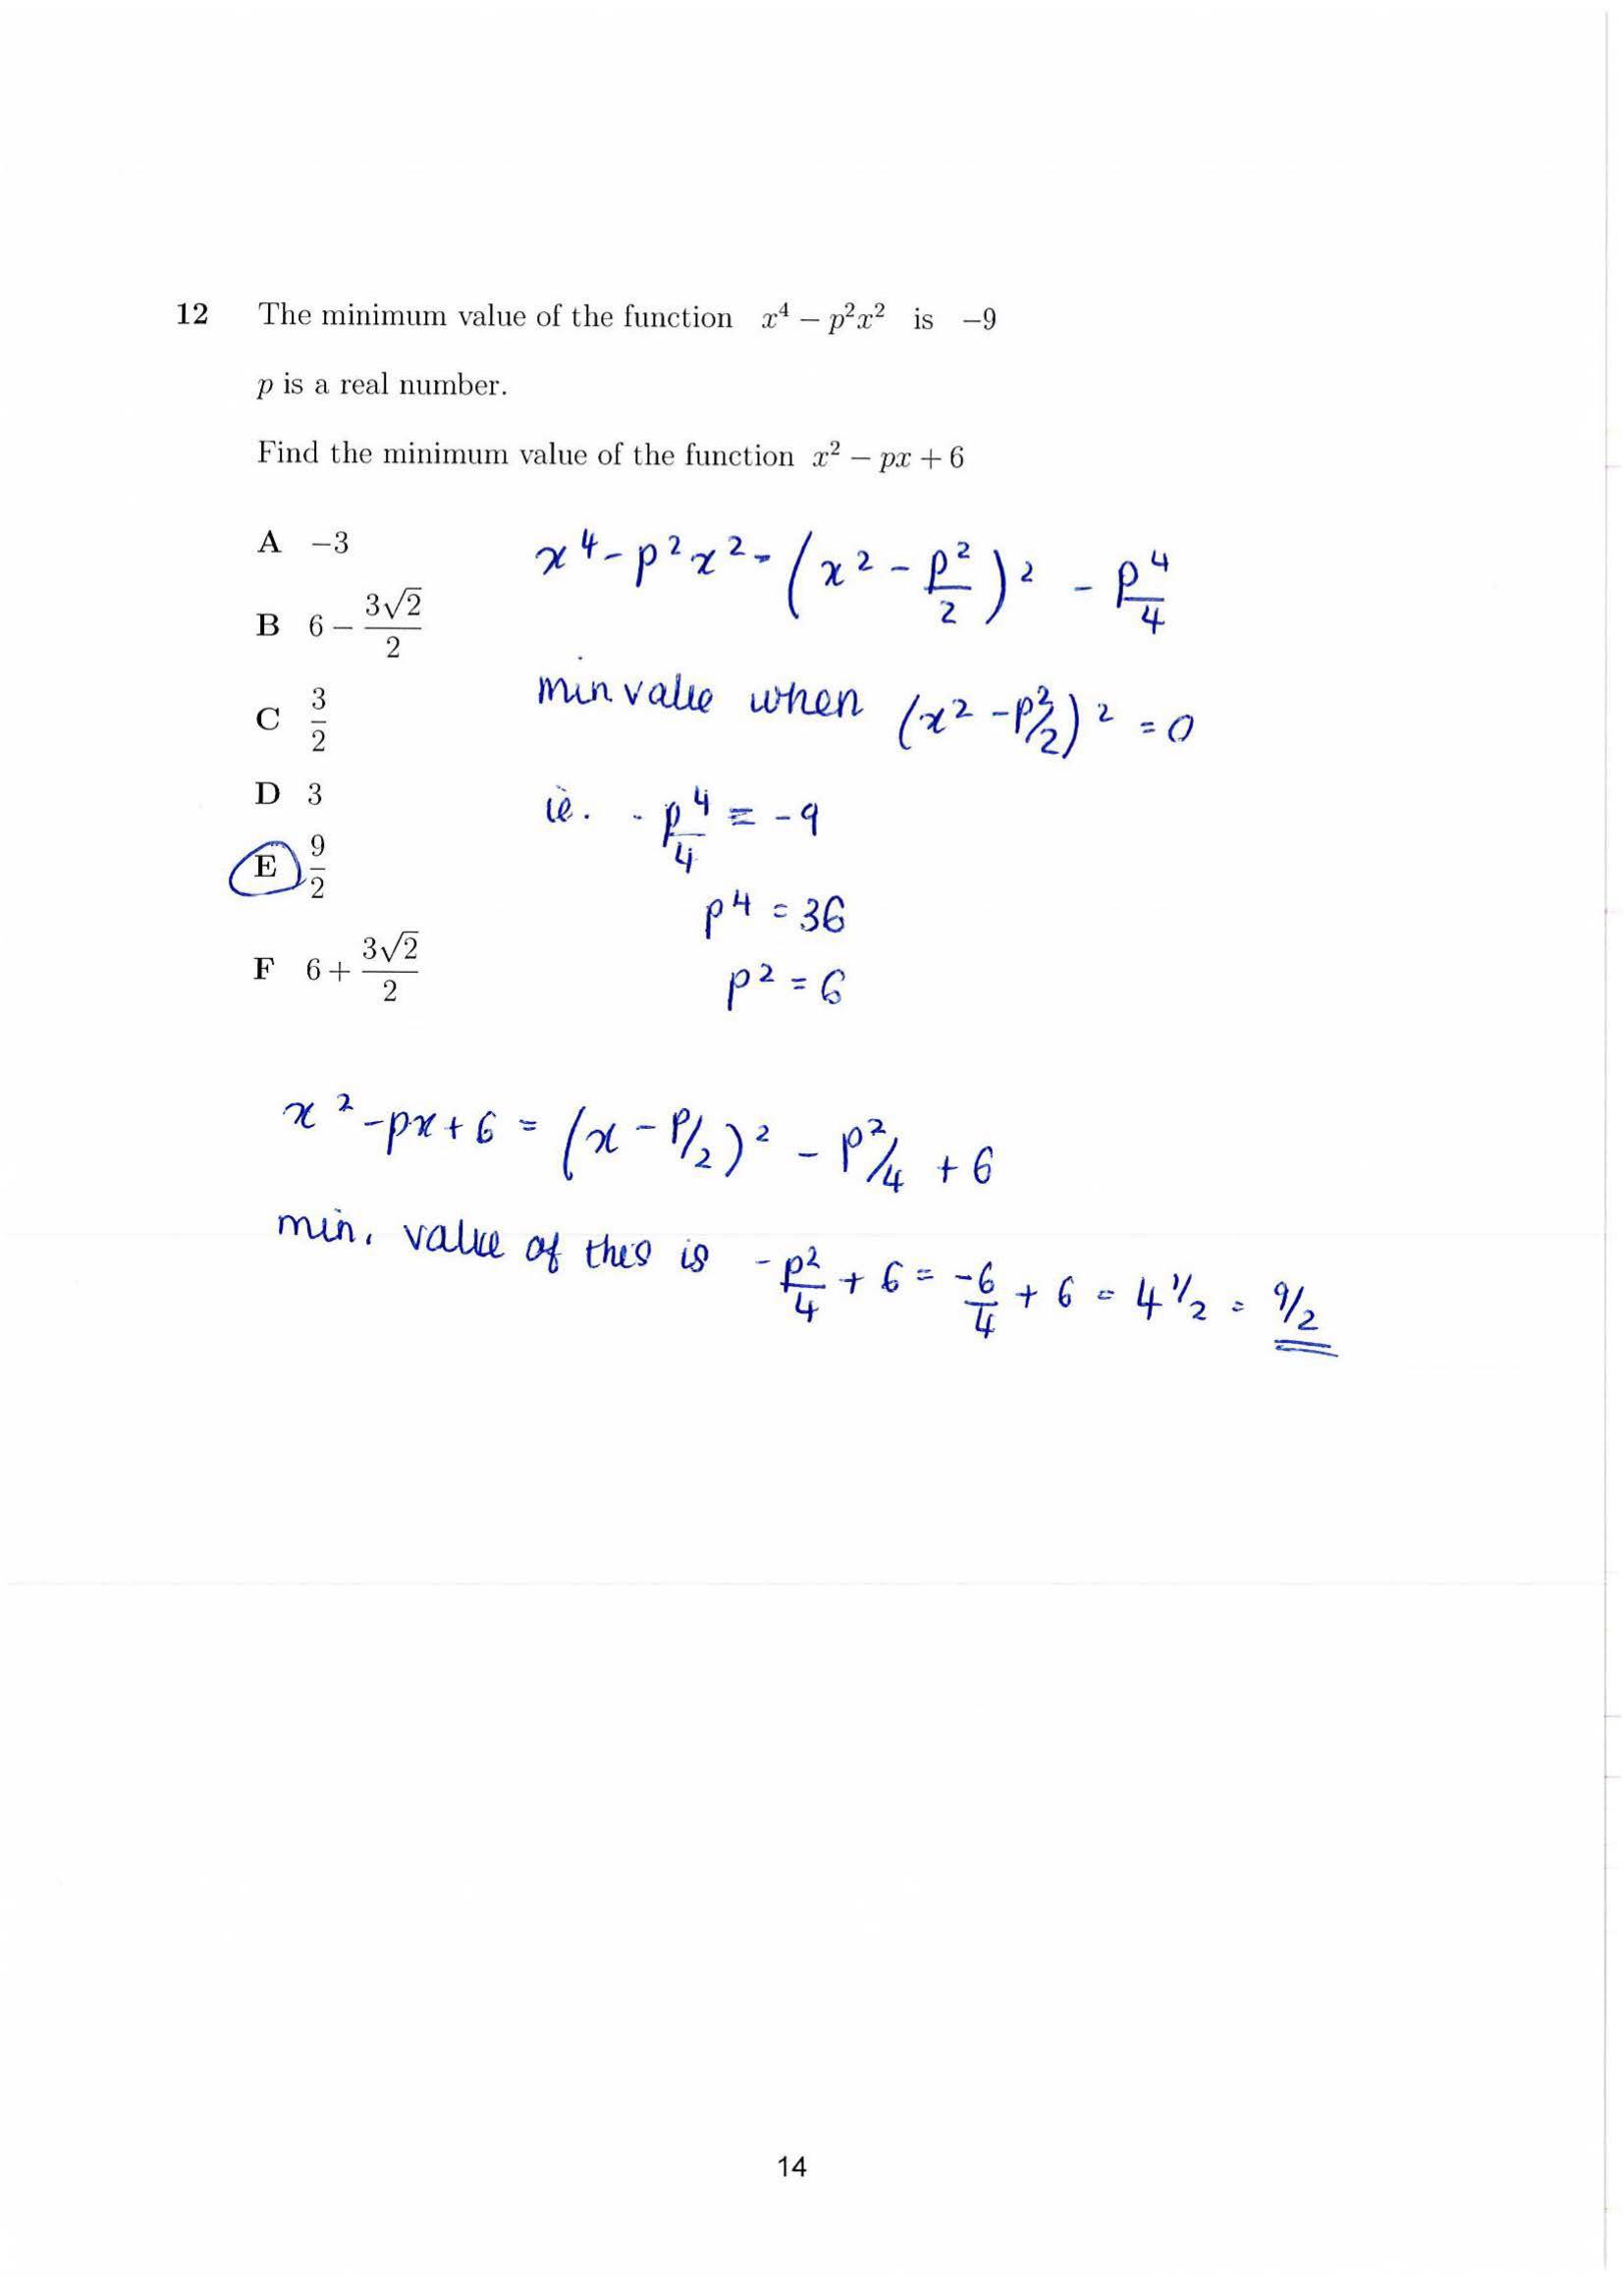 12 The minimum value of the function x⁴ − p²x² is −9
p is a real number.
Find the minimum value of the function x² − px + 6
A −3
B 6 − 3√2/2
C 3/2
D 3
E 9/2
F 6 + 3√2/2
x⁴ - p²x² = (x² - p²/2)² - p⁴/4
min value when (x² - p²/2)² = 0
ie. - p⁴/4 = -9
p⁴ = 36
p² = 6
x² - px + 6 = (x - p/2)² - p²/4 + 6
min. value of this is - p²/4 + 6 = -6/4 + 6 = 4 1/2 = 9/2
14